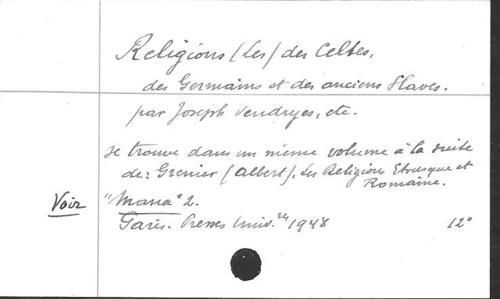 Religions (Les) des Celtes,
des Germains et des anciens Slaves.
par Joseph Vendryes, etc.
se trouve dans un même volume à la suite
de: Grenier (Albert). Les Religions Etrusque et
Romaine.
Voir "Mana" 2.
Paris. Presses Univ.res 1948 12°